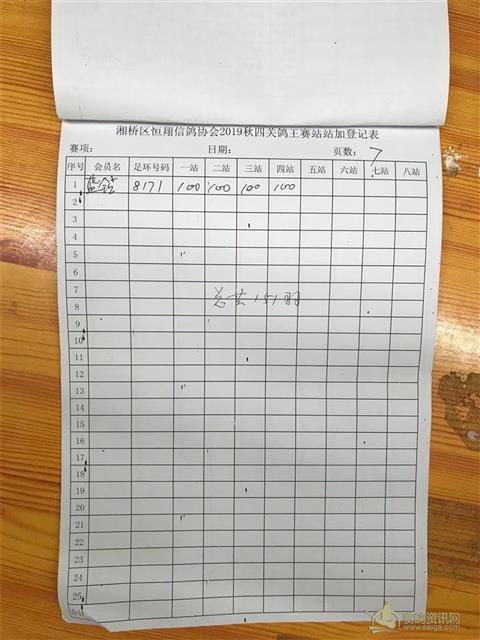 湘桥区恒翔信鸽协会2019秋四关鸽王赛站站加登记表
赛项： 日期： 页数：7
序号 会员名 足环号码 一站 二站 三站 四站 五站 六站 七站 八站
1 8171 100 100 100 100
2
3
4
5
6
7
总共151羽
8
9
10
11
12
13
14
15
16
17
18
19
20
21
22
23
24
25
合计
赛鸽资讯网
www.saige.com